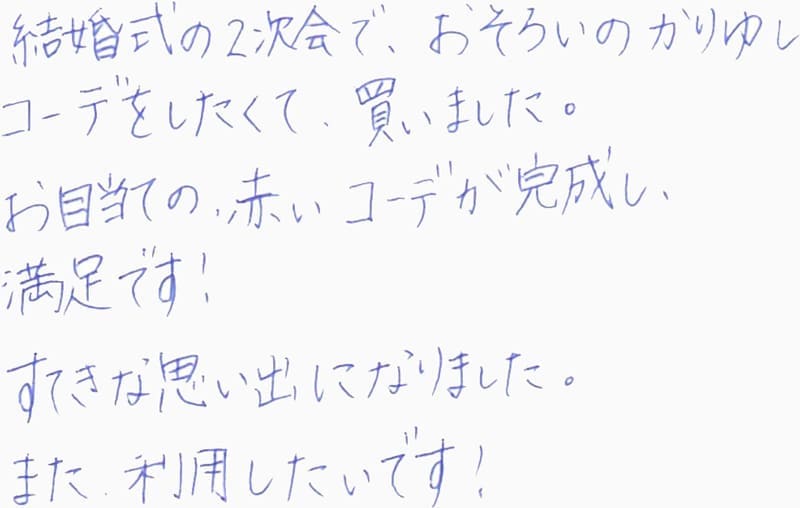 結婚式の2次会で、おそろいのかりゆし
コーデをしたくて、買いました。
お目当ての、赤いコーデが完成し、
満足です!
すてきな思い出になりました。
また、利用したいです!